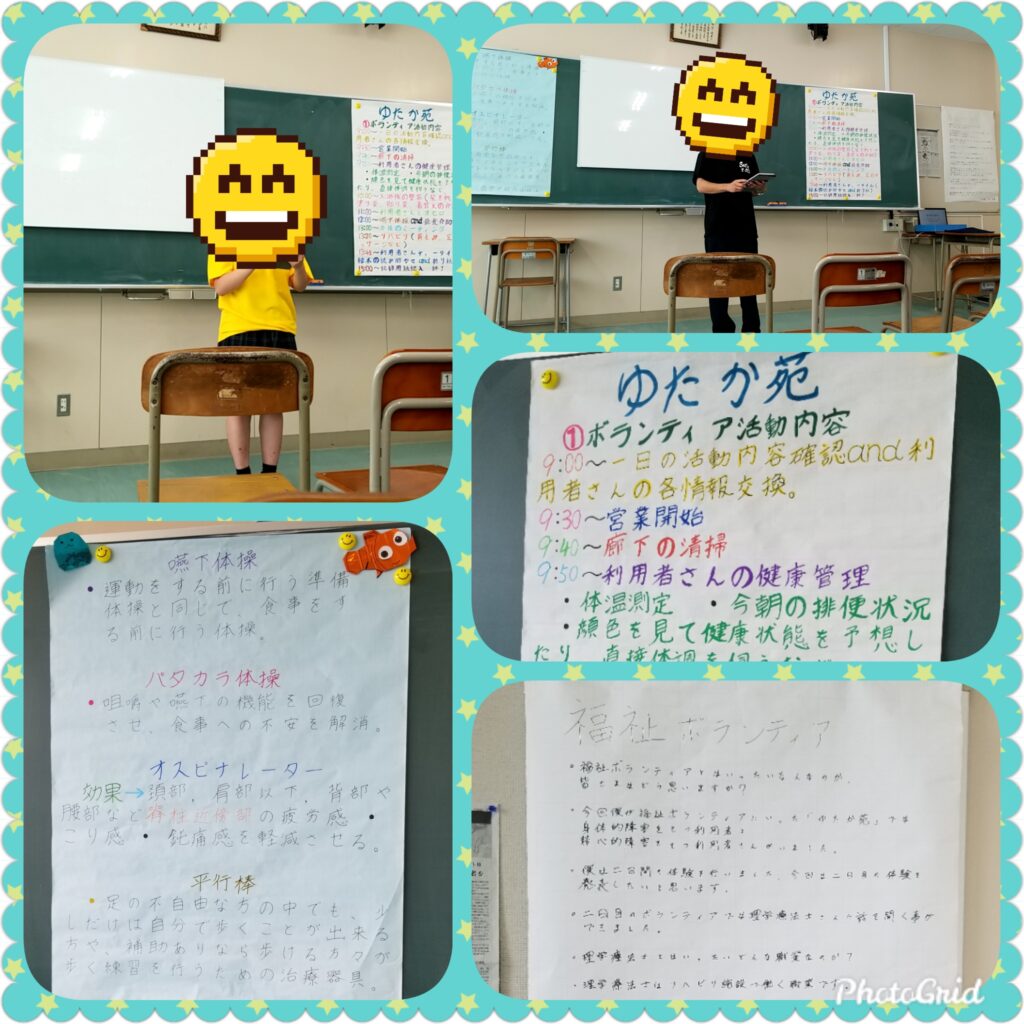 ゆたか苑
①ボランティア活動内容
9:30〜営業開始
9:40〜廊下の清掃
ゆたか苑
①ボランティア活動内容
ゆたか苑
①ボランティア活動内容
9:00〜一日の活動内容確認and利
用者さんの各情報交換。
9:30〜営業開始
9:40〜廊下の清掃
9:50〜利用者さんの健康管理
・体温測定 ・今朝の排便状況
・顔色を見て健康状態を予想し
たり、直接体調を伺うなど
嚥下体操
・運動をする前に行う準備
体操と同じで、食事をす
る前に行う体操。
パタカラ体操
・咀嚼や嚥下の機能を回復
させ、食事への不安を解消。
オスピナレーター
効果→頚部、肩部以下、背部や
腰部など脊柱近傍部の疲労感・
こり感・鈍痛感を軽減させる。
平行棒
・足の不自由な方の中でも、少
しだけは自分で歩くことが出来る
方や、補助ありなら歩ける方々が
歩く練習を行うための治療器具。
福祉ボランティア
・福祉ボランティアとはいったいなんなのか、
皆さまはどう思いますか?
・今回僕が福祉ボランティアにいった「ゆたか苑」では
身体的障害をもつ利用者と
精神的障害をもつ利用者さんがいました。
・僕は二日間の体験を行いました、今回は二日目の体験を
発表したいと思います。
・二日目のボランティアでは理学療法士さんの話を聞く事が
できました。
・理学療法士とはいったいどんな職業なのか?
・理学療法士はリハビリ施設で働く職業です
PhotoGrid